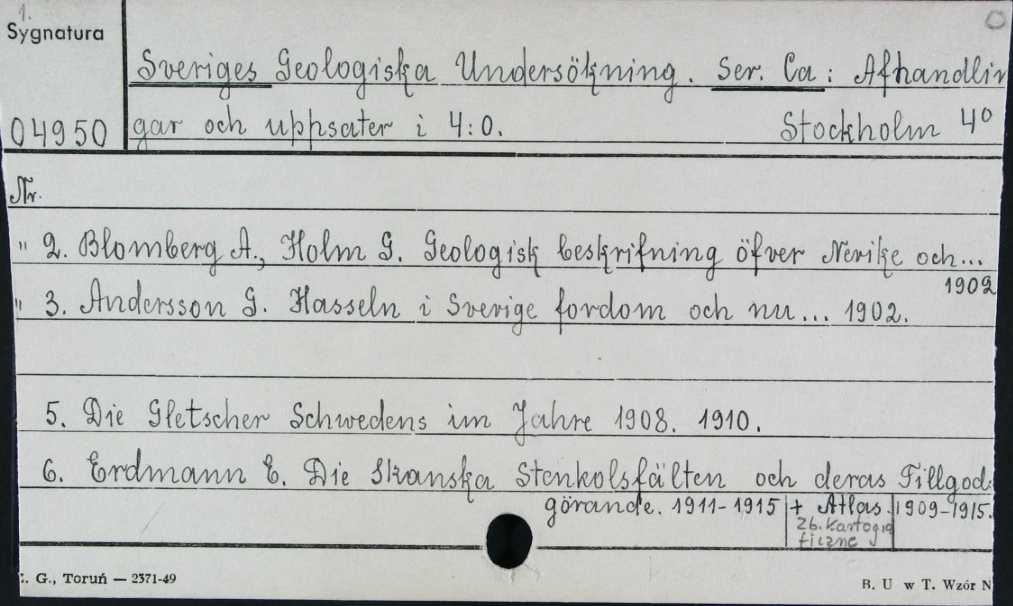 1.
Sygnatura
Sveriges Geologiska Undersökning. Ser. Ca: Afhandlin
04950 gar och uppsater i 4:0. Stockholm 4°
Nr.
" 2. Blomberg A., Holm G. Geologisk beskrifning öfver Nerike och...
1902
" 3. Andersson G. Hasseln i Sverige fordom och nu... 1902.
5. Die Gletscher Schwedens im Jahre 1908. 1910.
6. Erdmann E. Die Skanska Stenkolsfälten och deras Tillgod-
görande. 1911-1915 + Atlas. 1909-1915.
Zb. Kartogra
ficzne
. G., Toruń — 2371-49
B. U w T. Wzór N